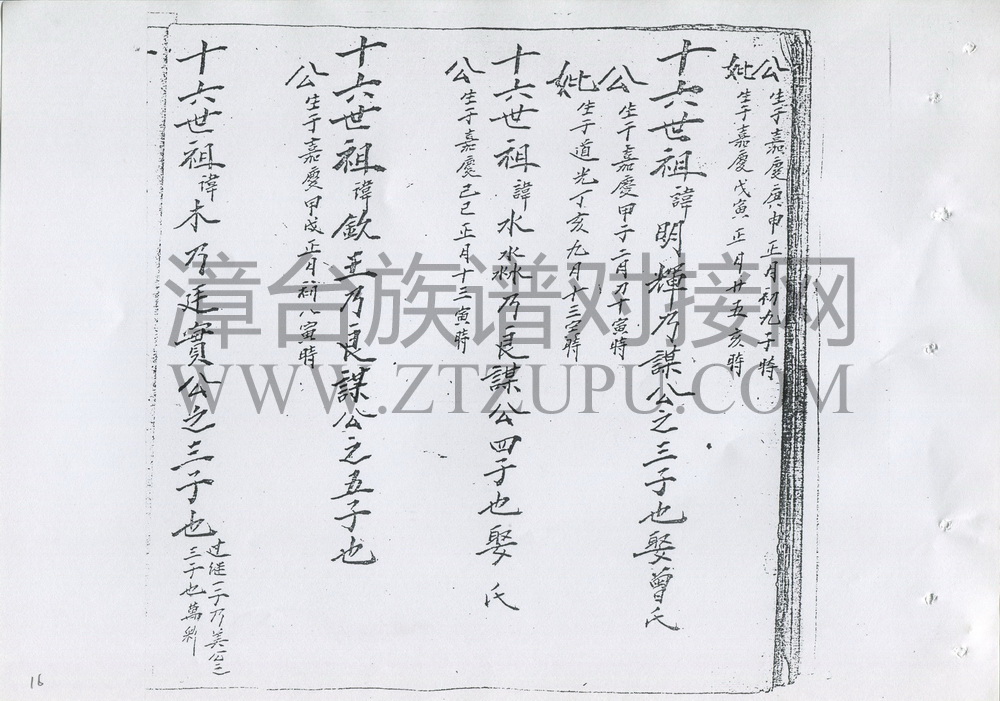 公生于嘉慶庚申正月初九子時
妣生于嘉慶戊寅正月廿五亥時
十六世祖諱明輝乃謀公之三子也娶曾氏
公生于嘉慶甲子二月初十寅時
妣生于道光丁亥九月十三寅時
十六世祖諱水淼乃良謀公四子也娶 氏
公生于嘉慶己巳正月十三寅時
十六世祖諱欽主乃良謀公之五子也
公生于嘉慶甲戌正月初八寅時
十六世祖諱木乃廷實公之三子也
过继一子乃美公之
三子也萬
漳台族谱对接网
WWW.ZTZUPU.COM
16